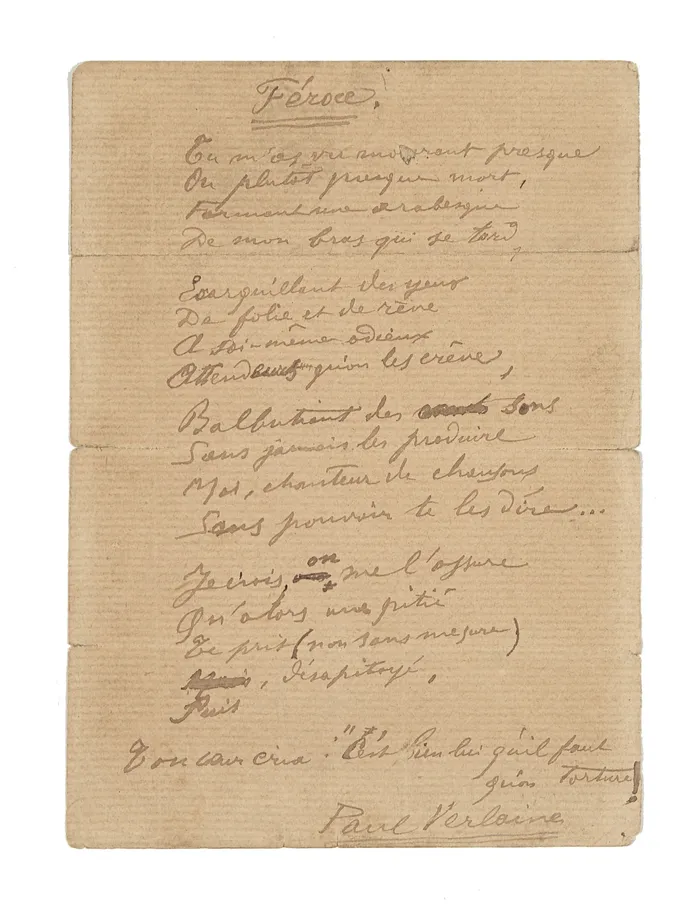 Féroce.
Tu m'as vu mourant presque
Ou plutôt presque mort,
Formant une arabesque
De mon bras qui se tord,
Ecarquillant des yeux
De folie et de rêve
A soi-même odieux
Attendant qu'on les crève,
Balbutiant des sons
Sans jamais les produire
Moi, chanteur de chansons
Sans pouvoir te les dire...
Je crois, on me l'assure
Qu'alors une pitié
Te prit (non sans mesure)
Mais, désapitoyé,
Puis
Ton cœur cria : "C'est bien lui qu'il faut
qu'on torture!
Paul Verlaine